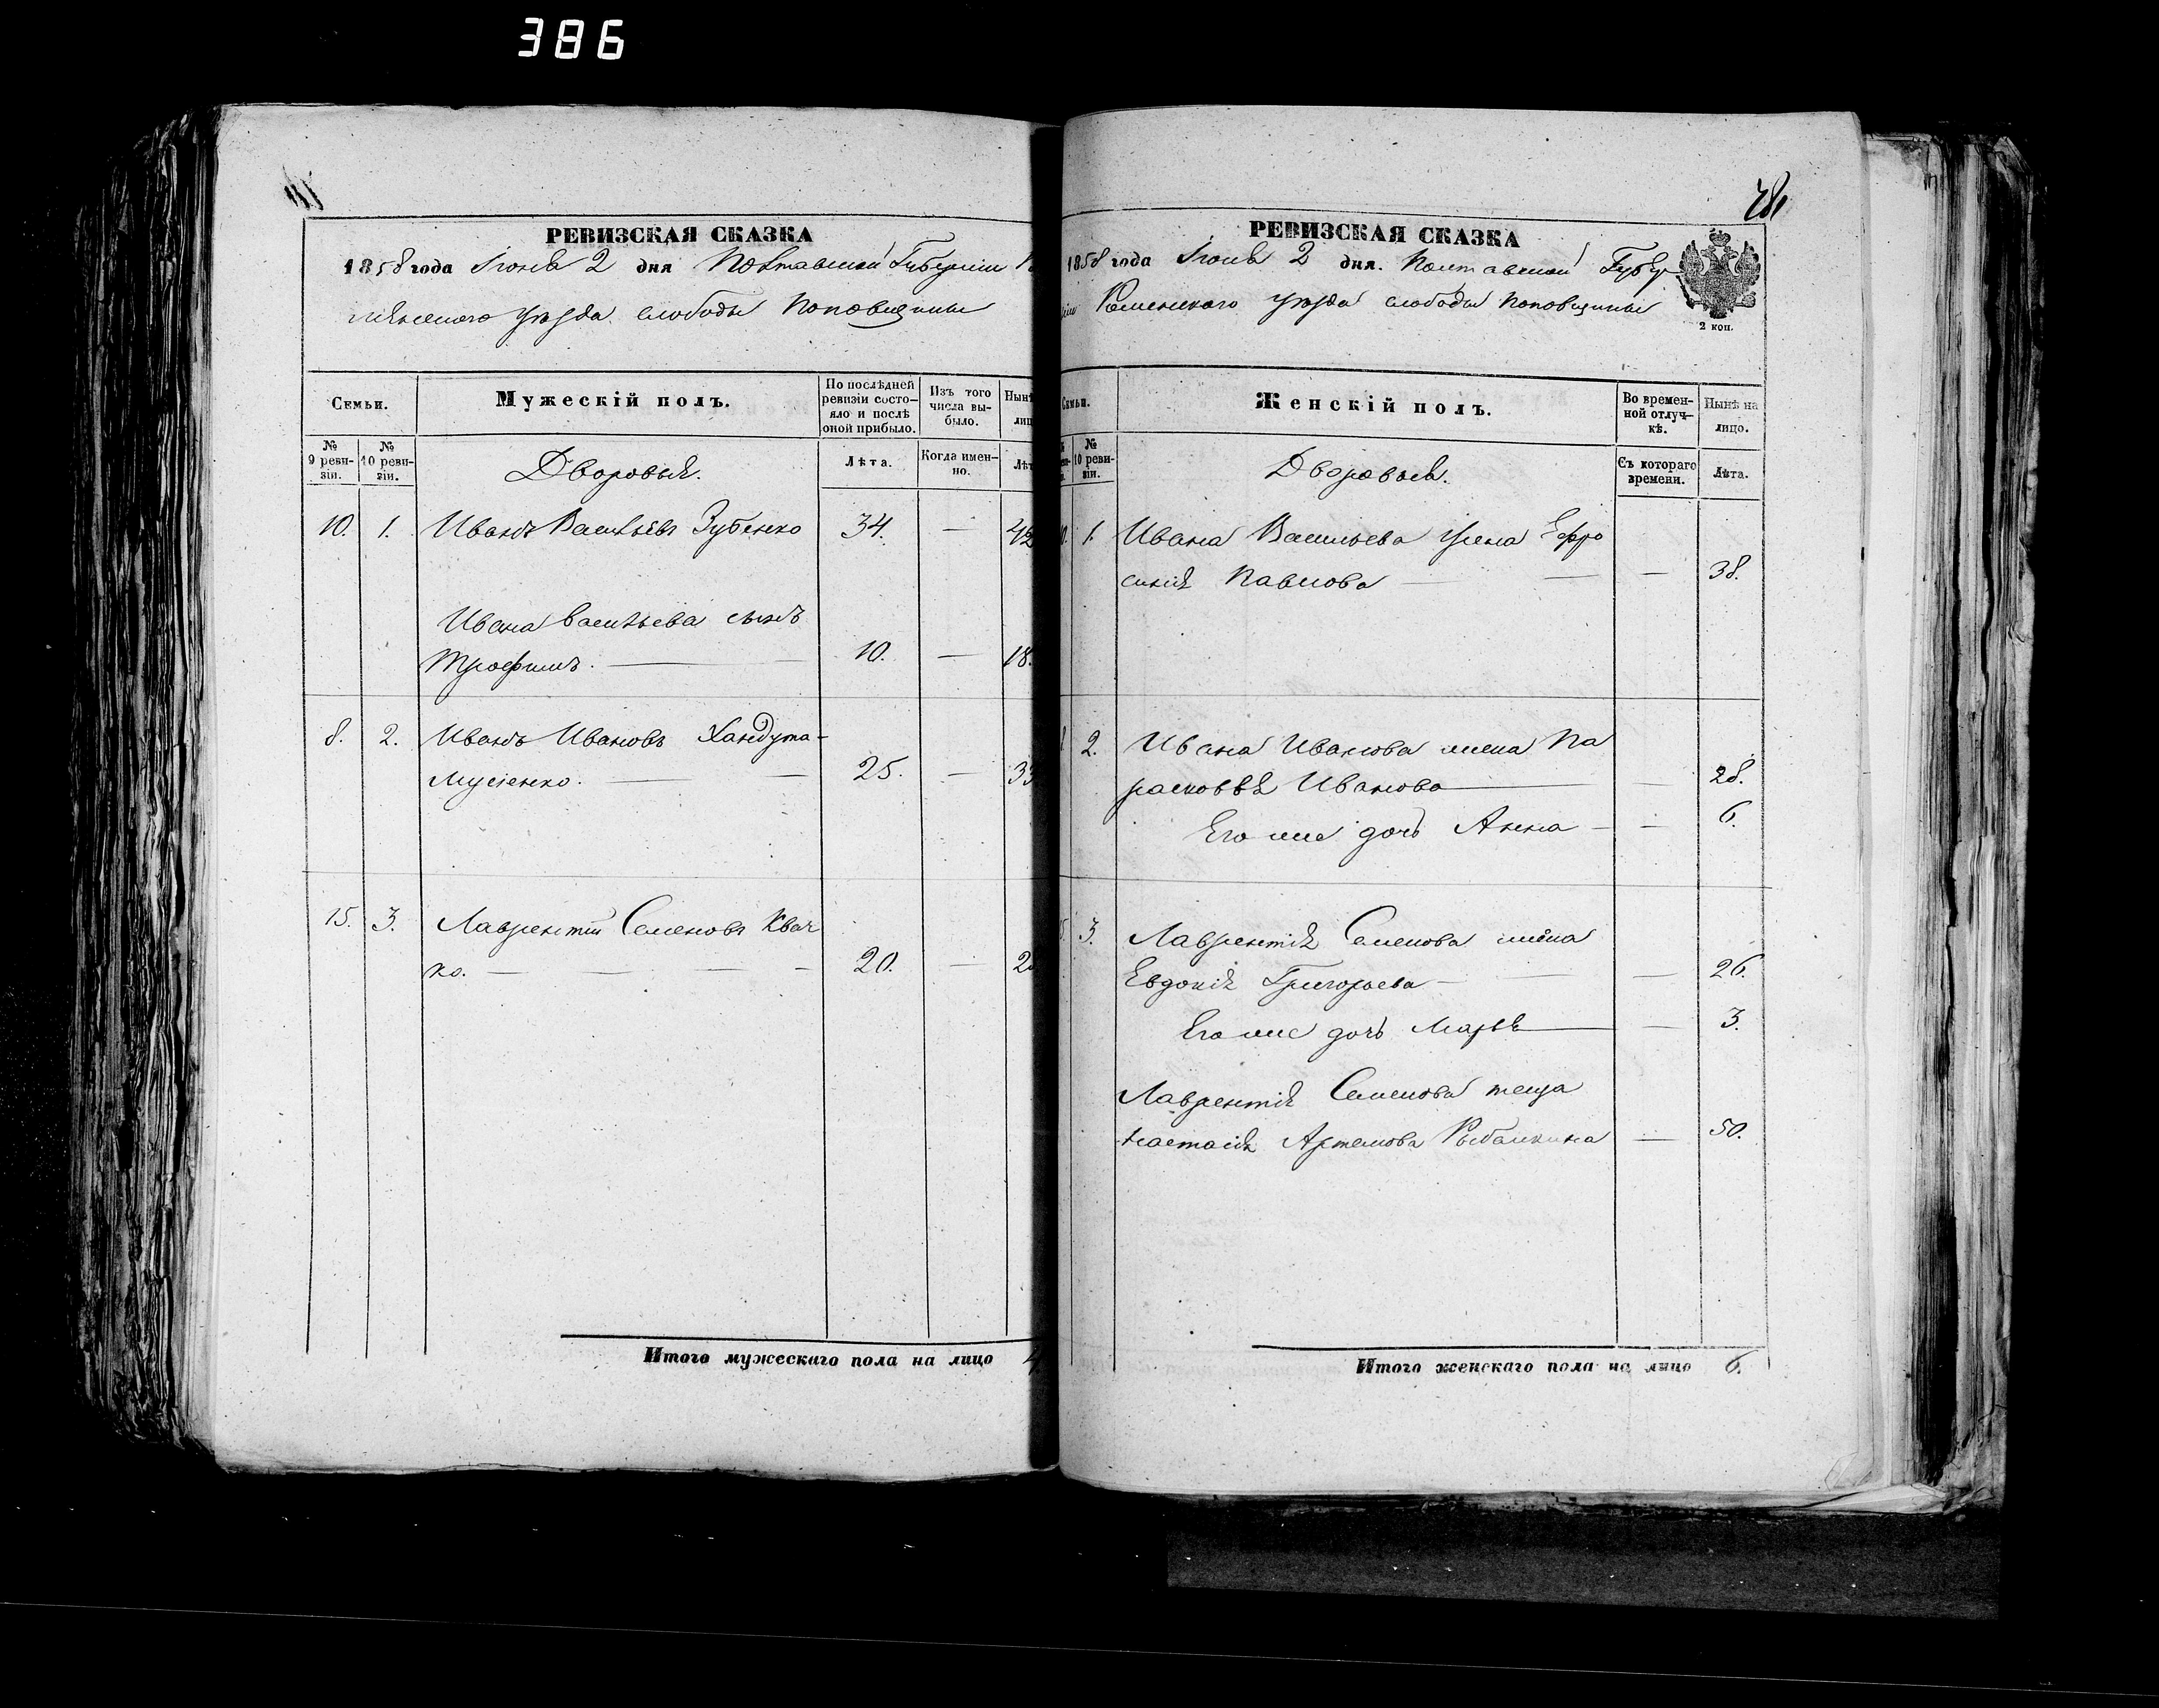 386
РЕВИЗСКАЯ СКАЗКА
1858 года Іюня 2 дня Полтавской Губерніи
менского уѣзда слободы Поповщины
Семьи.
Мужескій полъ.
По послѣдней ревизіи состо-
яло и послѣ
оной прибыло.
Изъ того
числа вы-
было.
Нынѣ
лиц
№
9 реви-
зіи.
№
10 реви-
зіи.
Дворовыя.
Лѣта.
Когда имен-
но.
Лѣт
10. 1. Иванъ Васильевъ Зубенко 34. — 42
Ивана Васильева сынъ
Трофимъ. — 10. — 18.
8. 2. Иванъ Ивановъ Хандута-
Мусіенко. — 25. — 33
15. 3. Лаврентій Семеновъ Квач
ко. — 20. — 2
Итого мужескаго пола на лицо 4
РЕВИЗСКАЯ СКАЗКА
1858 года Іюня 2 дня. Полтавской Губер
ніи Роменского уѣзда слободы Поповщины
2 коп.
Семьи.
Женскій полъ.
Во времен-
ной отлуч-
кѣ.
Нынѣ на
лицо.
№
10 реви-
зіи.
Дворовыя.
Съ котораго
времени.
Лѣта.
10. 1. Ивана Васильева жена Ефро
синія Павлова — — 38.
2. Ивана Иванова жена Па
расковія Иванова — — 28.
Его же дочь Анна — — 6.
15. 3. Лаврентія Семенова жена
Евдокія Григорьева — — 26.
Его же дочь Марья — — 3.
Лаврентія Семенова теща
Настасія Артемова Рыбалкина — 50.
Итого женскаго пола на лицо 6.